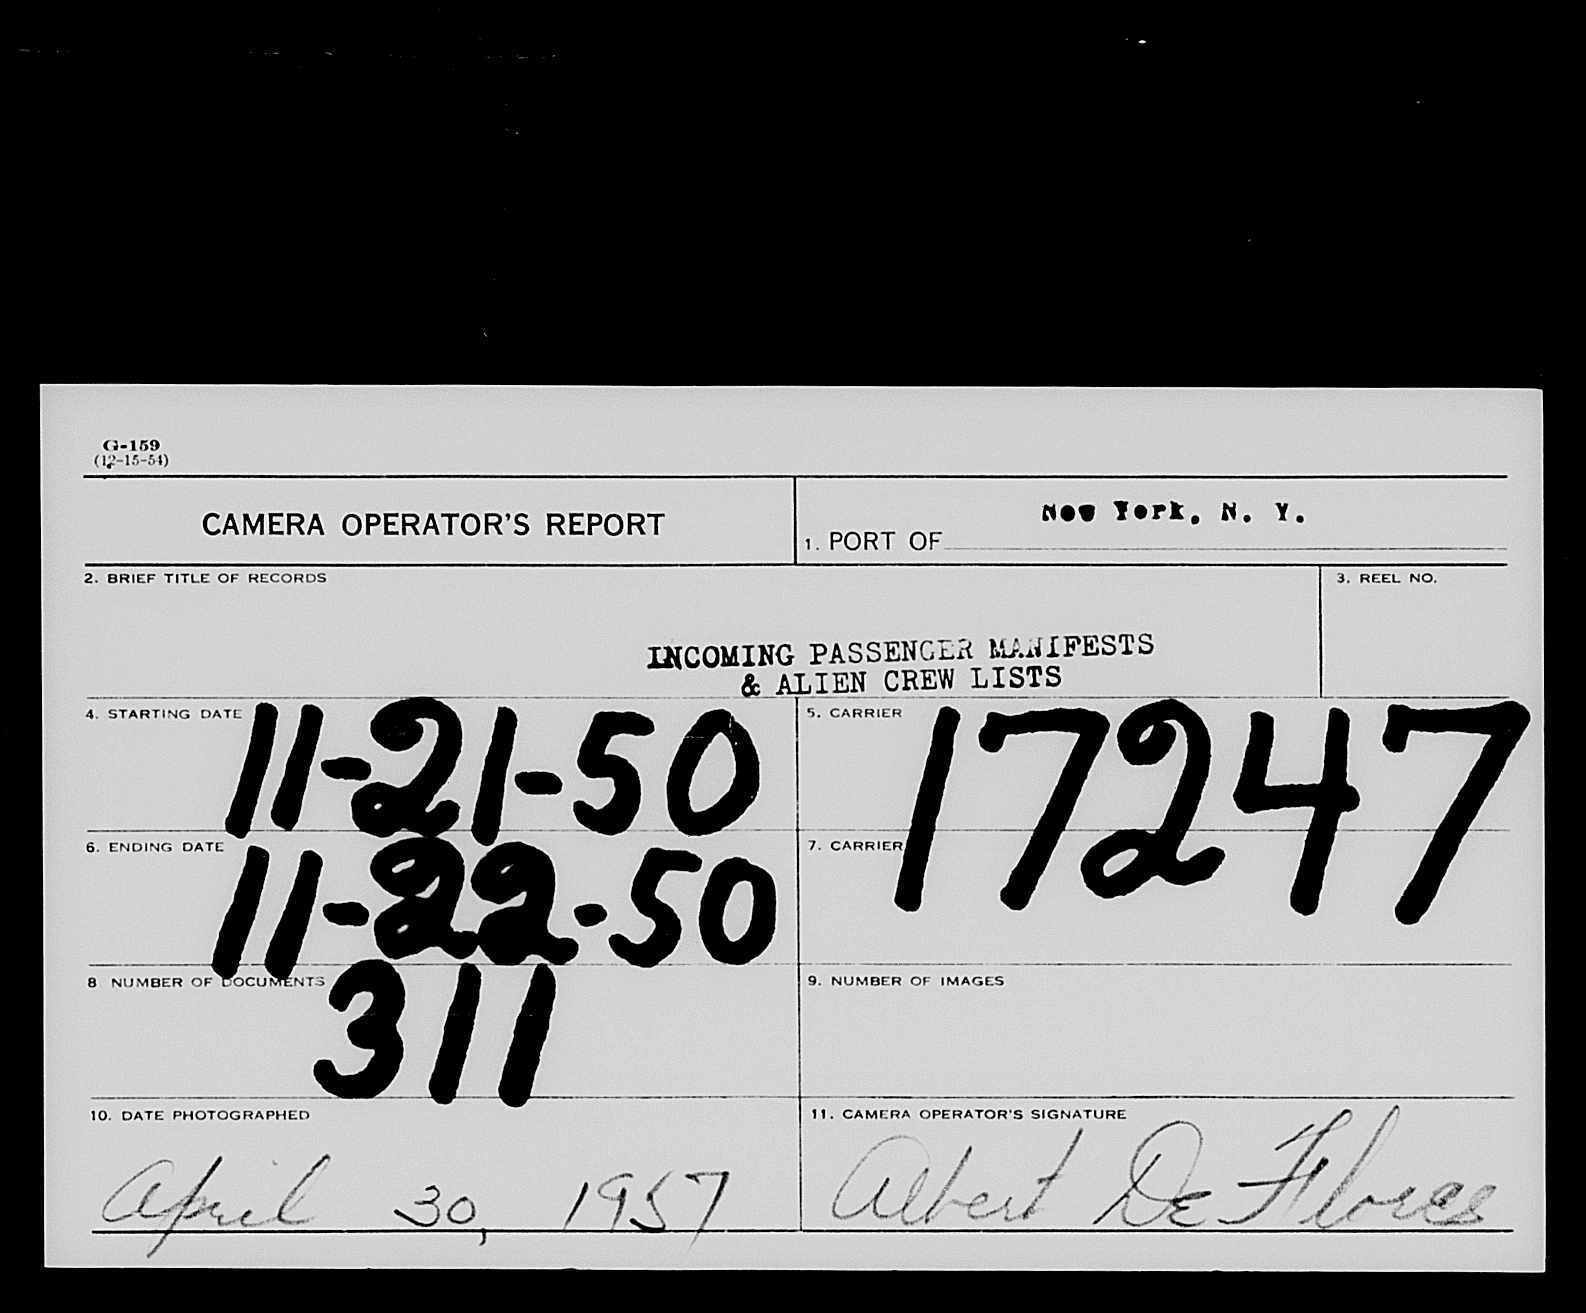 G-159
(12-15-54)
CAMERA OPERATOR'S REPORT
1. PORT OF New York, N. Y.
2. BRIEF TITLE OF RECORDS
3. REEL NO.
INCOMING PASSENGER MANIFESTS
& ALIEN CREW LISTS
4. STARTING DATE 11-21-50
5. CARRIER 17247
6. ENDING DATE 11-22-50
7. CARRIER
8 NUMBER OF DOCUMENTS 311
9. NUMBER OF IMAGES
10. DATE PHOTOGRAPHED
April 30, 1957
11. CAMERA OPERATOR'S SIGNATURE
Albert De Flores